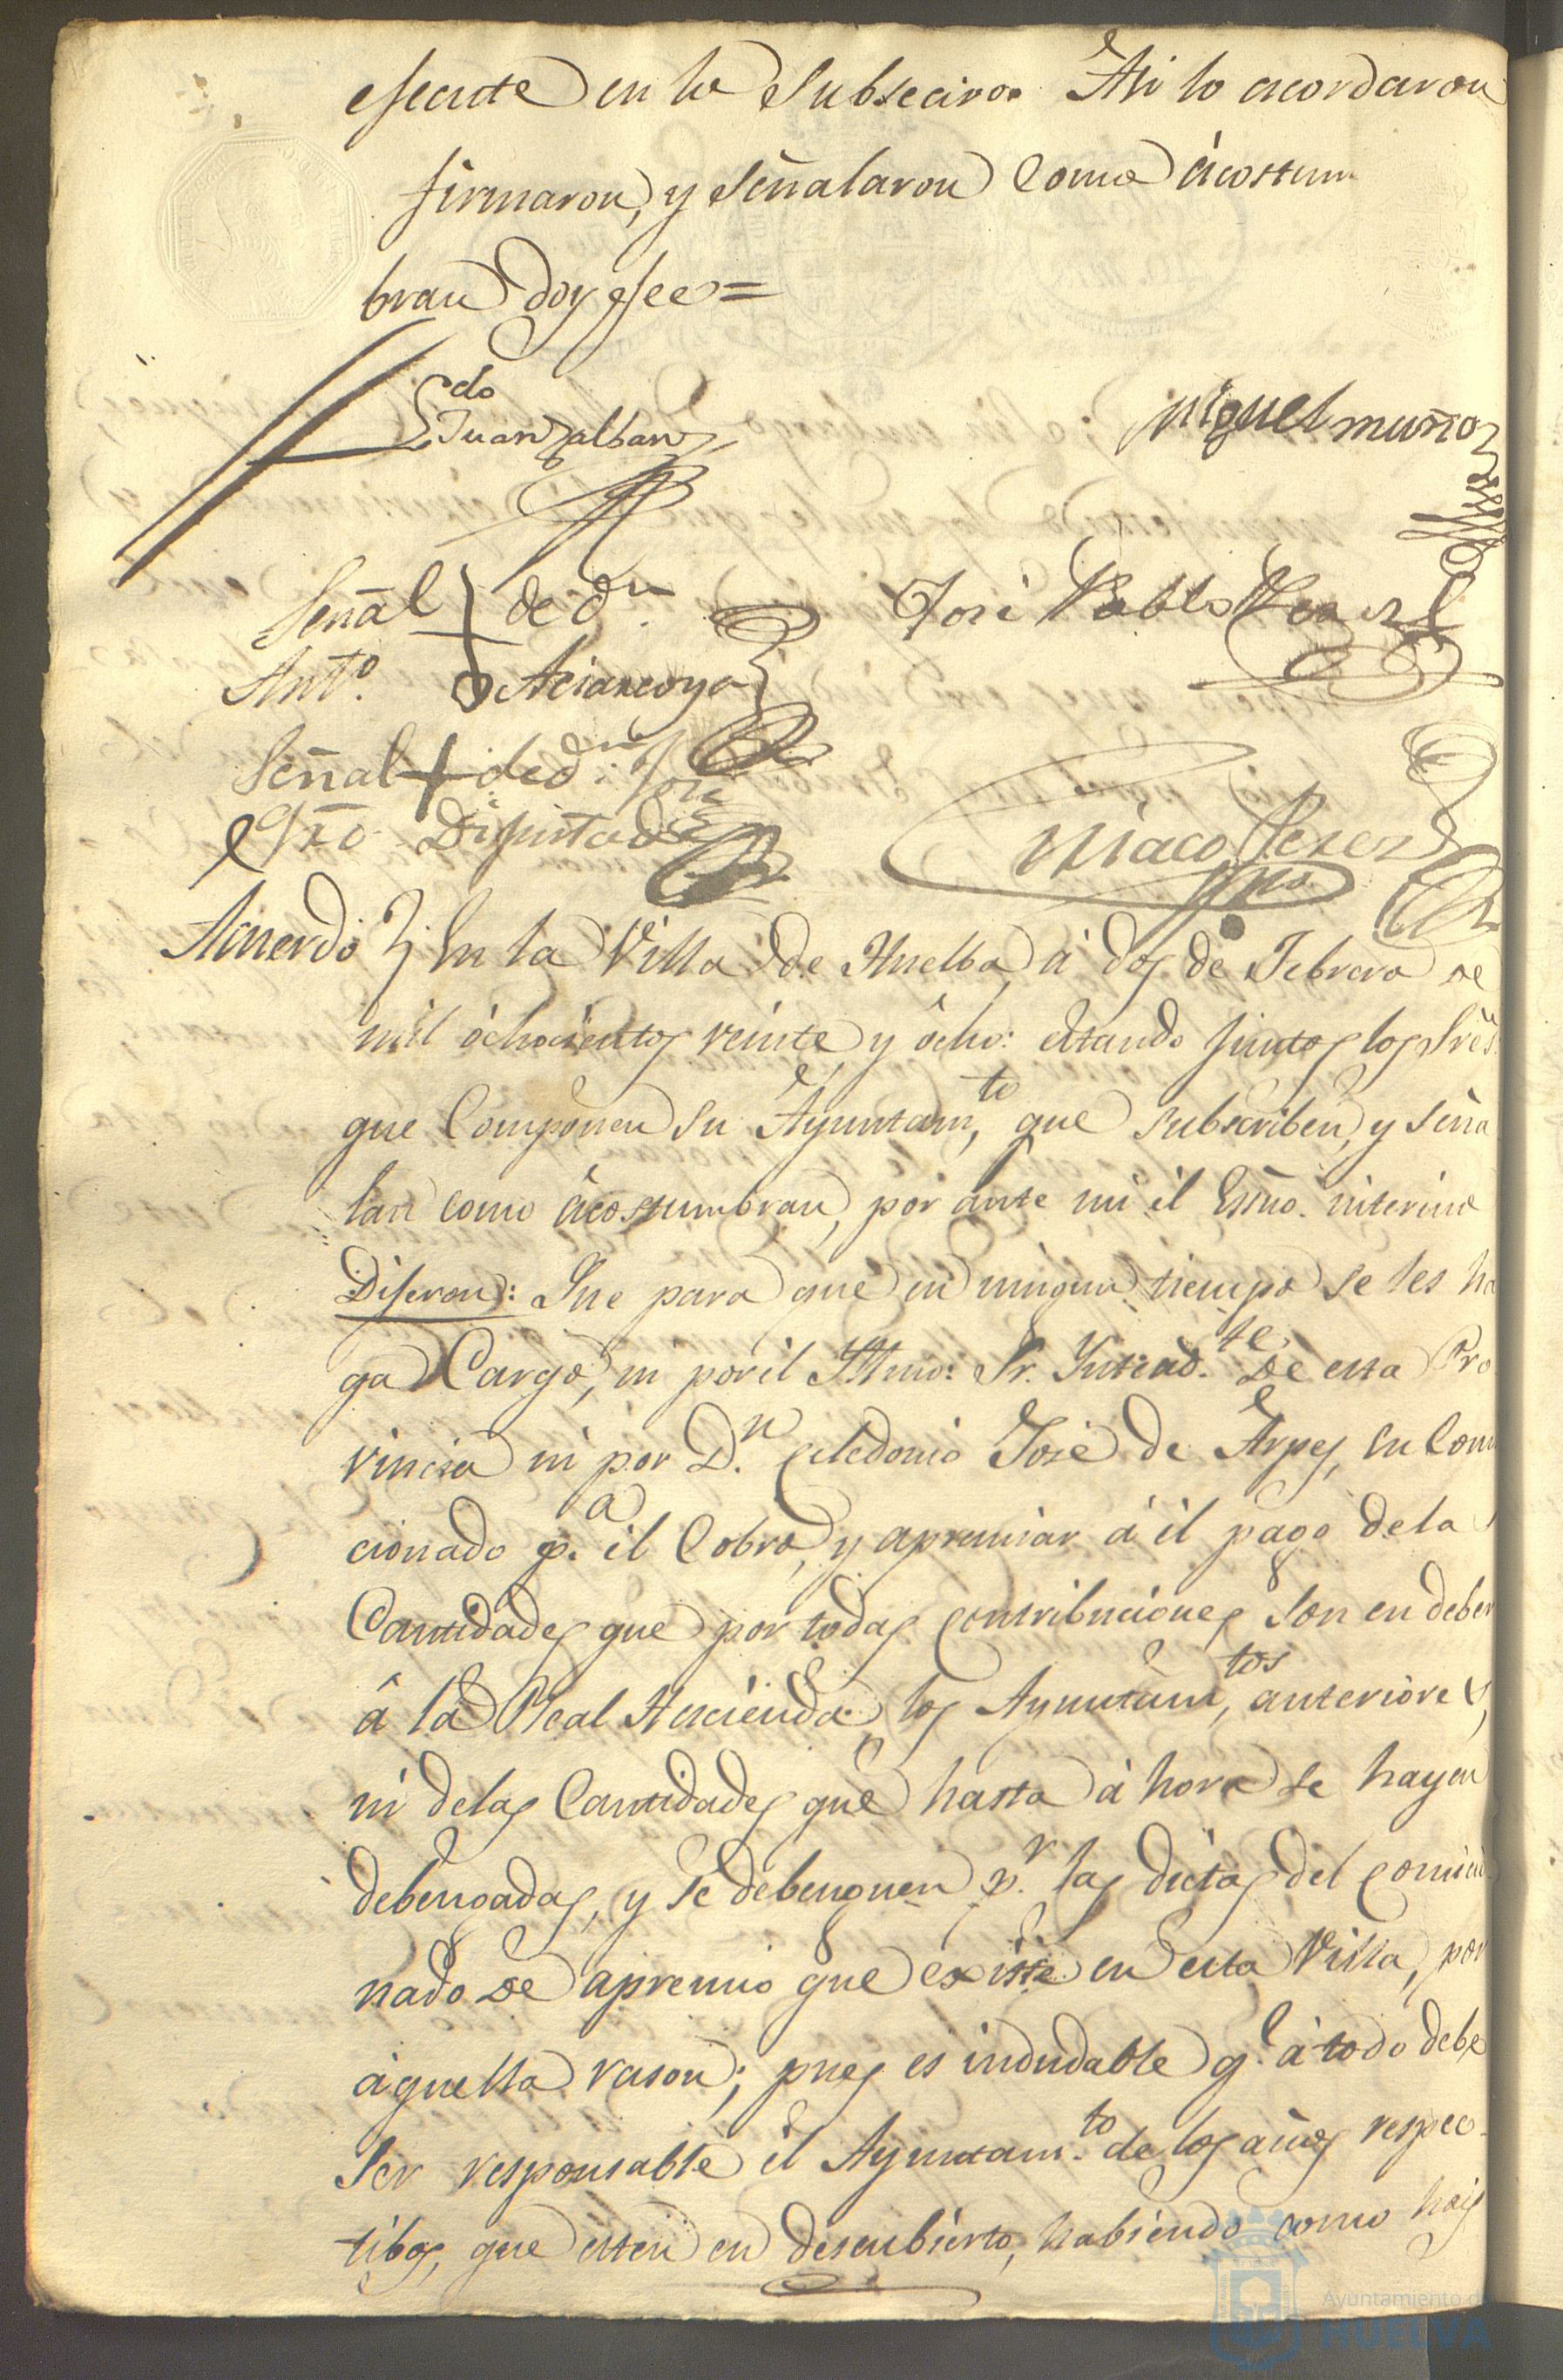 efecute en lo Subsecivo. Asi lo acordaron
firmaron, y señalaron como ácostum
bran doy fee =
Ldo Juan Alban
Miguel muños
Señal de dn
José Pablo Perez
Anto.
Señal + de dn. José
Diputado
Siriaco Perez
Acuerdo En la Villa de Huelba, à dos de Febrero de
mil ôchocientos veinte, y ôcho: estando juntos los Sres.
que Componen su Ayuntamto, que subscriben, y seña
lan como âcostumbran, por ante mi él Esño. interino
Diferon: Que para que en ningun tiempo se les ha
ga Cargo, ni por él Yltmo: Sr. Yntendte. de esta Pro
vincia ni por Dn. Celedonio José de Arpes, su Comi
cionado pa. él Cobro, y apremiar á él pago dela
Cantidades que por todas contribuciones son en deber
â la Real Hacienda los Ayuntamtos, anteriores,
ni delas Cantidades que hasta à hora se hayan
debengadas, y se debenguen pr. las dietas del comicio
nado de apremio que existe en esta Villa, por
àquella rason; pues es indudable qe. à todo debe
ser responsable él Ayuntamto. de los años respec
tibos, que esten en descubierto, habiendo como hay
Ayuntamiento de
HUELVA